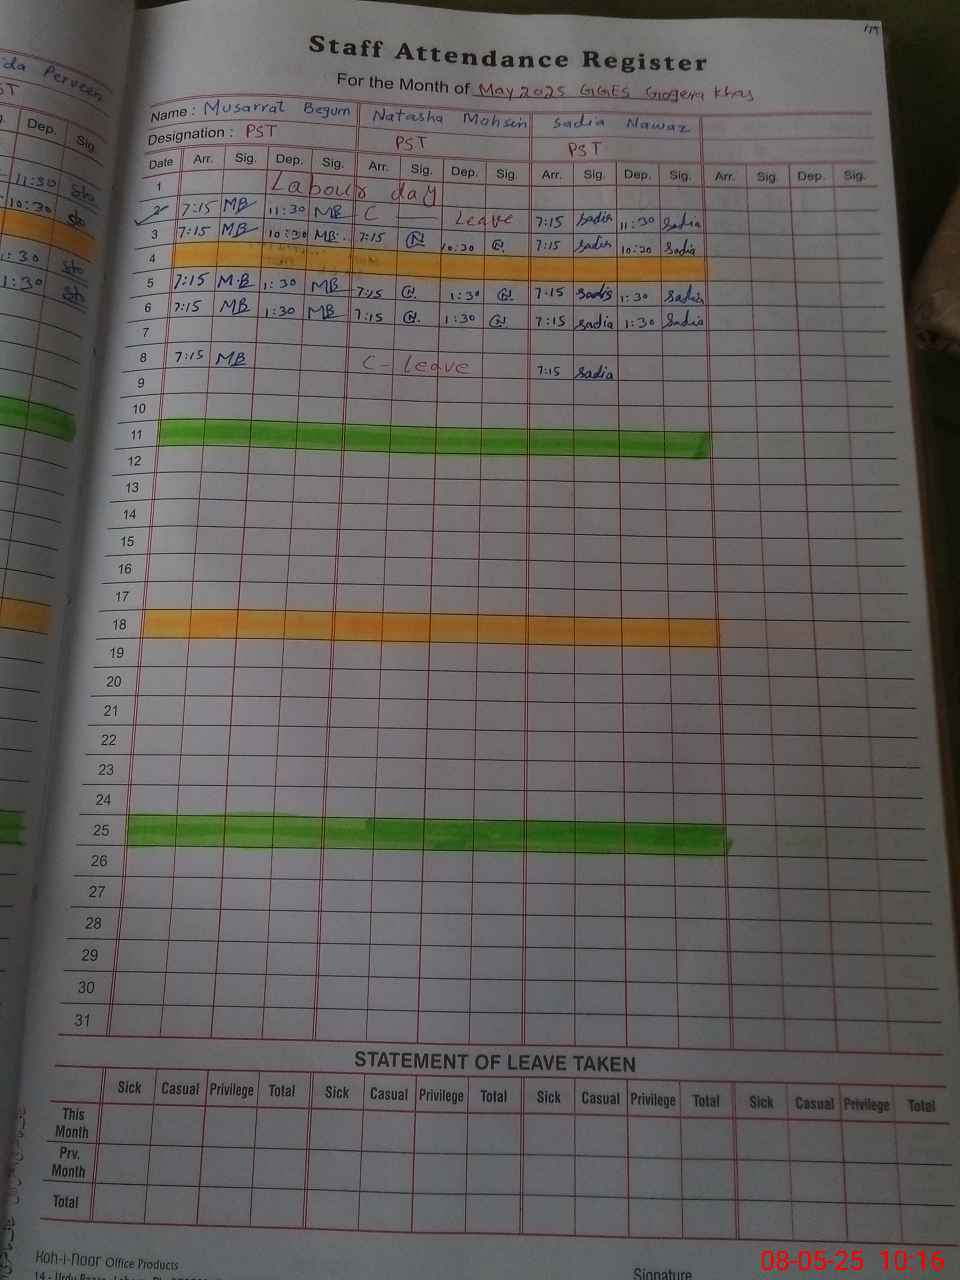 119
ida Perveen
ST
Dep. Sig.
11:30 sto
10:30 sto
1:30 sto
1:30 sto
Staff Attendance Register
For the Month of May 2025 GGES Gogera Khas
Name : Musarrat Begum Natasha Mohsin Sadia Nawaz
Designation : PST PST PST
Date Arr. Sig. Dep. Sig. Arr. Sig. Dep. Sig. Arr. Sig. Dep. Sig. Arr. Sig. Dep. Sig.
1 Labour day
2 7:15 MB 11:30 MB C — Leave 7:15 Sadia 11:30 Sadia
3 7:15 MB 10:30 MB 7:15 N 10:30 N 7:15 Sadia 10:30 Sadia
4
5 7:15 MB 1:30 MB 7:15 N 1:30 N 7:15 Sadia 1:30 Sadia
6 7:15 MB 1:30 MB 7:15 N 1:30 N 7:15 Sadia 1:30 Sadia
7
8 7:15 MB C - leave 7:15 Sadia
9
10
11
12
13
14
15
16
17
18
19
20
21
22
23
24
25
26
27
28
29
30
31
STATEMENT OF LEAVE TAKEN
Sick Casual Privilege Total Sick Casual Privilege Total Sick Casual Privilege Total Sick Casual Privilege Total
This Month
Prv. Month
Total
Koh-i-Noor Office Products
Signature
08-05-25 10:16